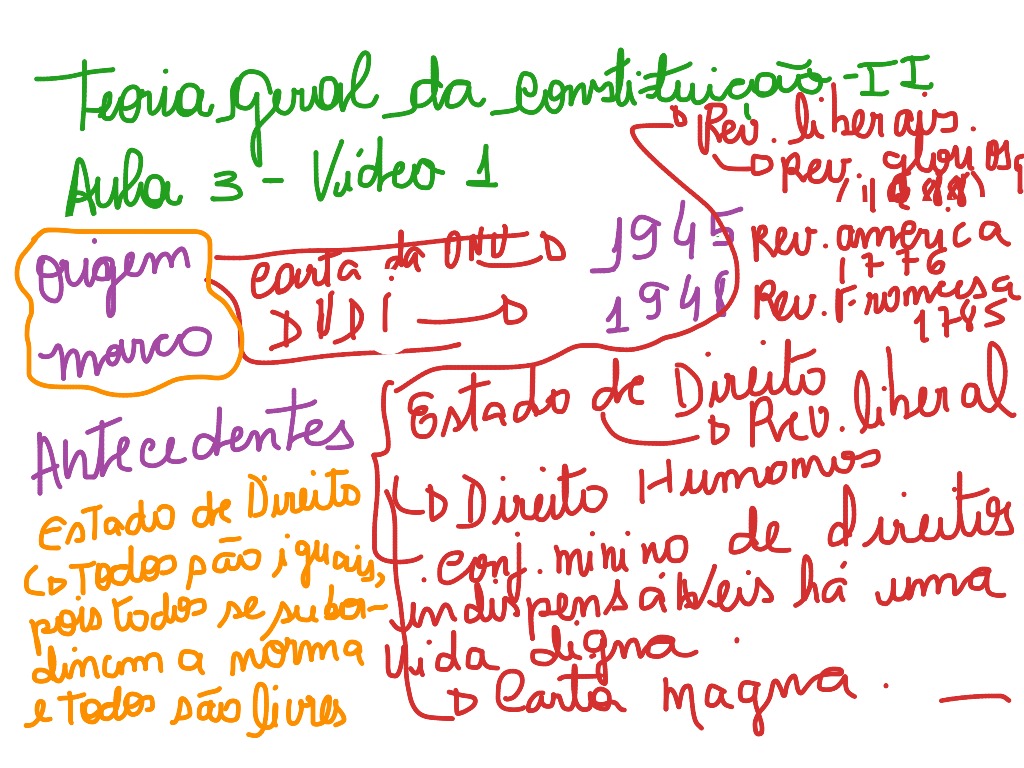 Teoria Geral da Constituição - II
Aula 3 - Vídeo 1
Rev. liberais.
Rev. glorios.
(1688)
Rev. america
1776
Rev. Francesa
1785
origem
marco
Carta da ONU
1945
DUDI
1948
Antecedentes
Estado de Direito
Rev. liberal
Direito Humanos
conj. minino de direitos
indispensáveis há uma
vida digna.
Carta magna.
Estado de Direito
Todos são iguais,
pois todos se subor-
dinam a norma
e todos são livres